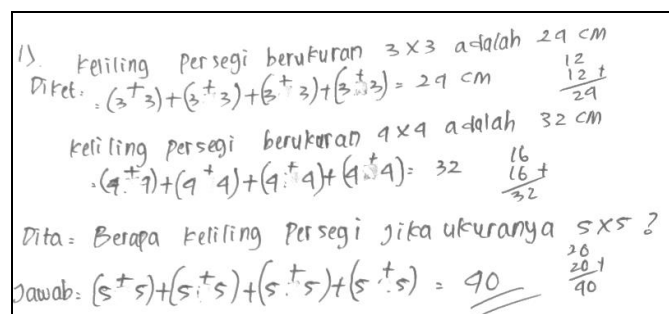 1). Keliling Persegi berukuran 3 x 3 adalah 24 cm
Diket: = (3+3)+(3+3)+(3+3)+(3+3) = 24 cm
12
12 +
24
Keliling Persegi berukuran 4x4 adalah 32 cm
= (4+4)+(4+4)+(4+4)+(4+4) = 32
16
16 +
32
Dita = Berapa Keliling Persegi Jika ukuranya 5x5 ?
Jawab = (5+5)+(5+5)+(5+5)+(5+5) = 40
20
20 +
40